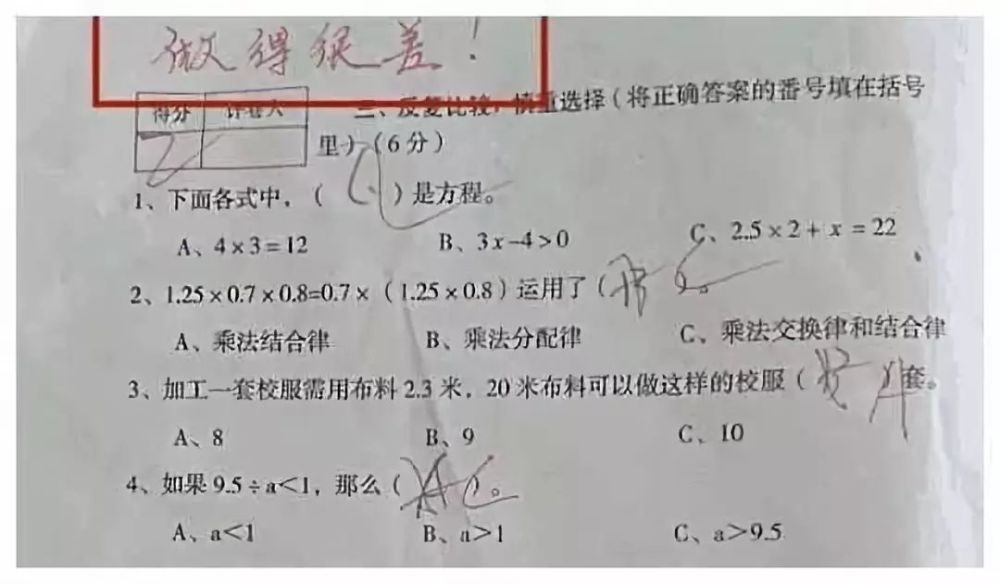 做得很差！
得分 评卷人 三、反复比较，慎重选择（将正确答案的番号填在括号
里）（6分）
1、下面各式中，（ ）是方程。
A、4×3=12 B、3x-4>0 C、2.5×2+x=22
2、1.25×0.7×0.8=0.7×（1.25×0.8）运用了（ ）。
A、乘法结合律 B、乘法分配律 C、乘法交换律和结合律
3、加工一套校服需用布料2.3米，20米布料可以做这样的校服（ ）套。
A、8 B、9 C、10
4、如果9.5÷a<1，那么（ ）。
A、a<1 B、a>1 C、a>9.5